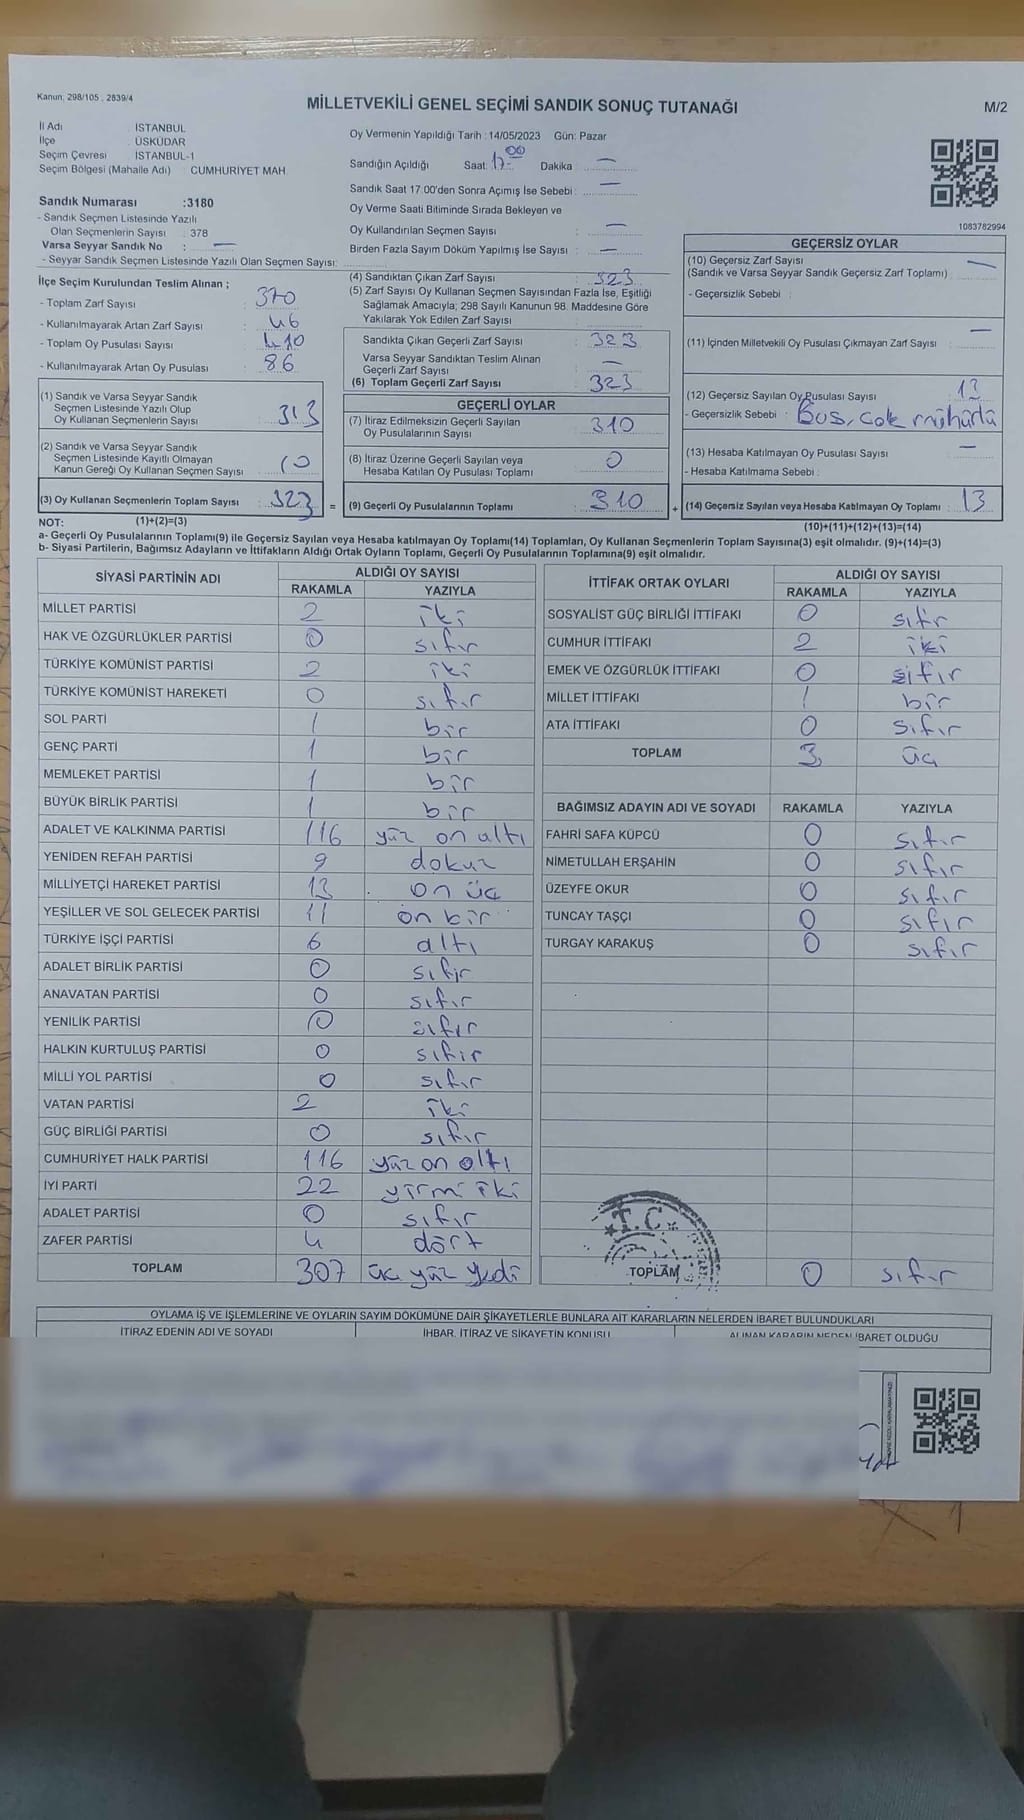 Kanun: 298/105 , 2839/4
MİLLETVEKİLİ GENEL SEÇİMİ SANDIK SONUÇ TUTANAĞI
M/2
İl Adı : İSTANBUL
İlçe : ÜSKÜDAR
Seçim Çevresi : İSTANBUL-1
Seçim Bölgesi (Mahalle Adı) : CUMHURİYET MAH.
Sandık Numarası :3180
- Sandık Seçmen Listesinde Yazılı
Olan Seçmenlerin Sayısı : 378
Varsa Seyyar Sandık No : —
- Seyyar Sandık Seçmen Listesinde Yazılı Olan Seçmen Sayısı:
İlçe Seçim Kurulundan Teslim Alınan ;
- Toplam Zarf Sayısı : 370
- Kullanılmayarak Artan Zarf Sayısı : 46
- Toplam Oy Pusulası Sayısı : 410
- Kullanılmayarak Artan Oy Pusulası : 86
(1) Sandık ve Varsa Seyyar Sandık
Seçmen Listesinde Yazılı Olup
Oy Kullanan Seçmenlerin Sayısı : 313
(2) Sandık ve Varsa Seyyar Sandık
Seçmen Listesinde Kayıtlı Olmayan
Kanun Gereği Oy Kullanan Seçmen Sayısı : 10
(3) Oy Kullanan Seçmenlerin Toplam Sayısı : 323
Oy Vermenin Yapıldığı Tarih : 14/05/2023 Gün: Pazar
Sandığın Açıldığı Saat: 17.00 Dakika : —
Sandık Saat 17.00'den Sonra Açımış İse Sebebi : —
Oy Verme Saati Bitiminde Sırada Bekleyen ve
Oy Kullandırılan Seçmen Sayısı : —
Birden Fazla Sayım Döküm Yapılmış İse Sayısı : —
(4) Sandıktan Çıkan Zarf Sayısı : 323
(5) Zarf Sayısı Oy Kullanan Seçmen Sayısından Fazla İse, Eşitliği
Sağlamak Amacıyla; 298 Sayılı Kanunun 98. Maddesine Göre
Yakılarak Yok Edilen Zarf Sayısı :
Sandıkta Çıkan Geçerli Zarf Sayısı : 323
Varsa Seyyar Sandıktan Teslim Alınan
Geçerli Zarf Sayısı : —
(6) Toplam Geçerli Zarf Sayısı : 323
GEÇERLİ OYLAR
(7) İtiraz Edilmeksizin Geçerli Sayılan
Oy Pusulalarının Sayısı : 310
(8) İtiraz Üzerine Geçerli Sayılan veya
Hesaba Katılan Oy Pusulası Toplamı : 0
= (9) Geçerli Oy Pusulalarının Toplamı : 310
1083782994
GEÇERSİZ OYLAR
(10) Geçersiz Zarf Sayısı : —
(Sandık ve Varsa Seyyar Sandık Geçersiz Zarf Toplamı)
- Geçersizlik Sebebi :
(11) İçinden Milletvekili Oy Pusulası Çıkmayan Zarf Sayısı : —
(12) Geçersiz Sayılan Oy Pusulası Sayısı : 13
- Geçersizlik Sebebi : Boş, çok mühürlü
(13) Hesaba Katılmayan Oy Pusulası Sayısı : —
- Hesaba Katılmama Sebebi :
+ (14) Geçersiz Sayılan veya Hesaba Katılmayan Oy Toplamı : 13
NOT: (1)+(2)=(3)
(10)+(11)+(12)+(13)=(14)
a- Geçerli Oy Pusulalarının Toplamı(9) ile Geçersiz Sayılan veya Hesaba katılmayan Oy Toplamı(14) Toplamları, Oy Kullanan Seçmenlerin Toplam Sayısına(3) eşit olmalıdır. (9)+(14)=(3)
b- Siyasi Partilerin, Bağımsız Adayların ve İttifakların Aldığı Ortak Oyların Toplamı, Geçerli Oy Pusulalarının Toplamına(9) eşit olmalıdır.
SİYASİ PARTİNİN ADI ALDIĞI OY SAYISI
RAKAMLA YAZIYLA
MİLLET PARTİSİ 2 iki
HAK VE ÖZGÜRLÜKLER PARTİSİ 0 sıfır
TÜRKİYE KOMÜNİST PARTİSİ 2 iki
TÜRKİYE KOMÜNİST HAREKETİ 0 sıfır
SOL PARTİ 1 bir
GENÇ PARTİ 1 bir
MEMLEKET PARTİSİ 1 bir
BÜYÜK BİRLİK PARTİSİ 1 bir
ADALET VE KALKINMA PARTİSİ 116 yüz on altı
YENİDEN REFAH PARTİSİ 9 dokuz
MİLLİYETÇİ HAREKET PARTİSİ 13 on üç
YEŞİLLER VE SOL GELECEK PARTİSİ 11 on bir
TÜRKİYE İŞÇİ PARTİSİ 6 altı
ADALET BİRLİK PARTİSİ 0 sıfır
ANAVATAN PARTİSİ 0 sıfır
YENİLİK PARTİSİ 0 sıfır
HALKIN KURTULUŞ PARTİSİ 0 sıfır
MİLLİ YOL PARTİSİ 0 sıfır
VATAN PARTİSİ 2 iki
GÜÇ BİRLİĞİ PARTİSİ 0 sıfır
CUMHURİYET HALK PARTİSİ 116 yüz on altı
İYİ PARTİ 22 yirmi iki
ADALET PARTİSİ 0 sıfır
ZAFER PARTİSİ 4 dört
TOPLAM 307 üç yüz yedi
İTTİFAK ORTAK OYLARI ALDIĞI OY SAYISI
RAKAMLA YAZIYLA
SOSYALİST GÜÇ BİRLİĞİ İTTİFAKI 0 sıfır
CUMHUR İTTİFAKI 2 iki
EMEK VE ÖZGÜRLÜK İTTİFAKI 0 sıfır
MİLLET İTTİFAKI 1 bir
ATA İTTİFAKI 0 sıfır
TOPLAM 3 üç
BAĞIMSIZ ADAYIN ADI VE SOYADI RAKAMLA YAZIYLA
FAHRİ SAFA KÜPCÜ 0 sıfır
NİMETULLAH ERŞAHİN 0 sıfır
ÜZEYFE OKUR 0 sıfır
TUNCAY TAŞÇI 0 sıfır
TURGAY KARAKUŞ 0 sıfır
T.C.
TOPLAM 0 sıfır
OYLAMA İŞ VE İŞLEMLERİNE VE OYLARIN SAYIM DÖKÜMÜNE DAİR ŞİKAYETLERLE BUNLARA AİT KARARLARIN NELERDEN İBARET BULUNDUKLARI
İTİRAZ EDENİN ADI VE SOYADI İHBAR, İTİRAZ VE ŞİKAYETİN KONUSU ALINAN KARARIN NEDEN İBARET OLDUĞU